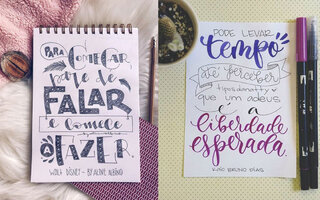 PARA
COMEÇAR
pare de
FALAR
e comece
A
FAZER
WALT DISNEY - BY ALINE ALBINO
PODE LEVAR
tempo
até perceber
que um adeus
é a
liberdade
esperada.
KAIO BRUNO DIAS